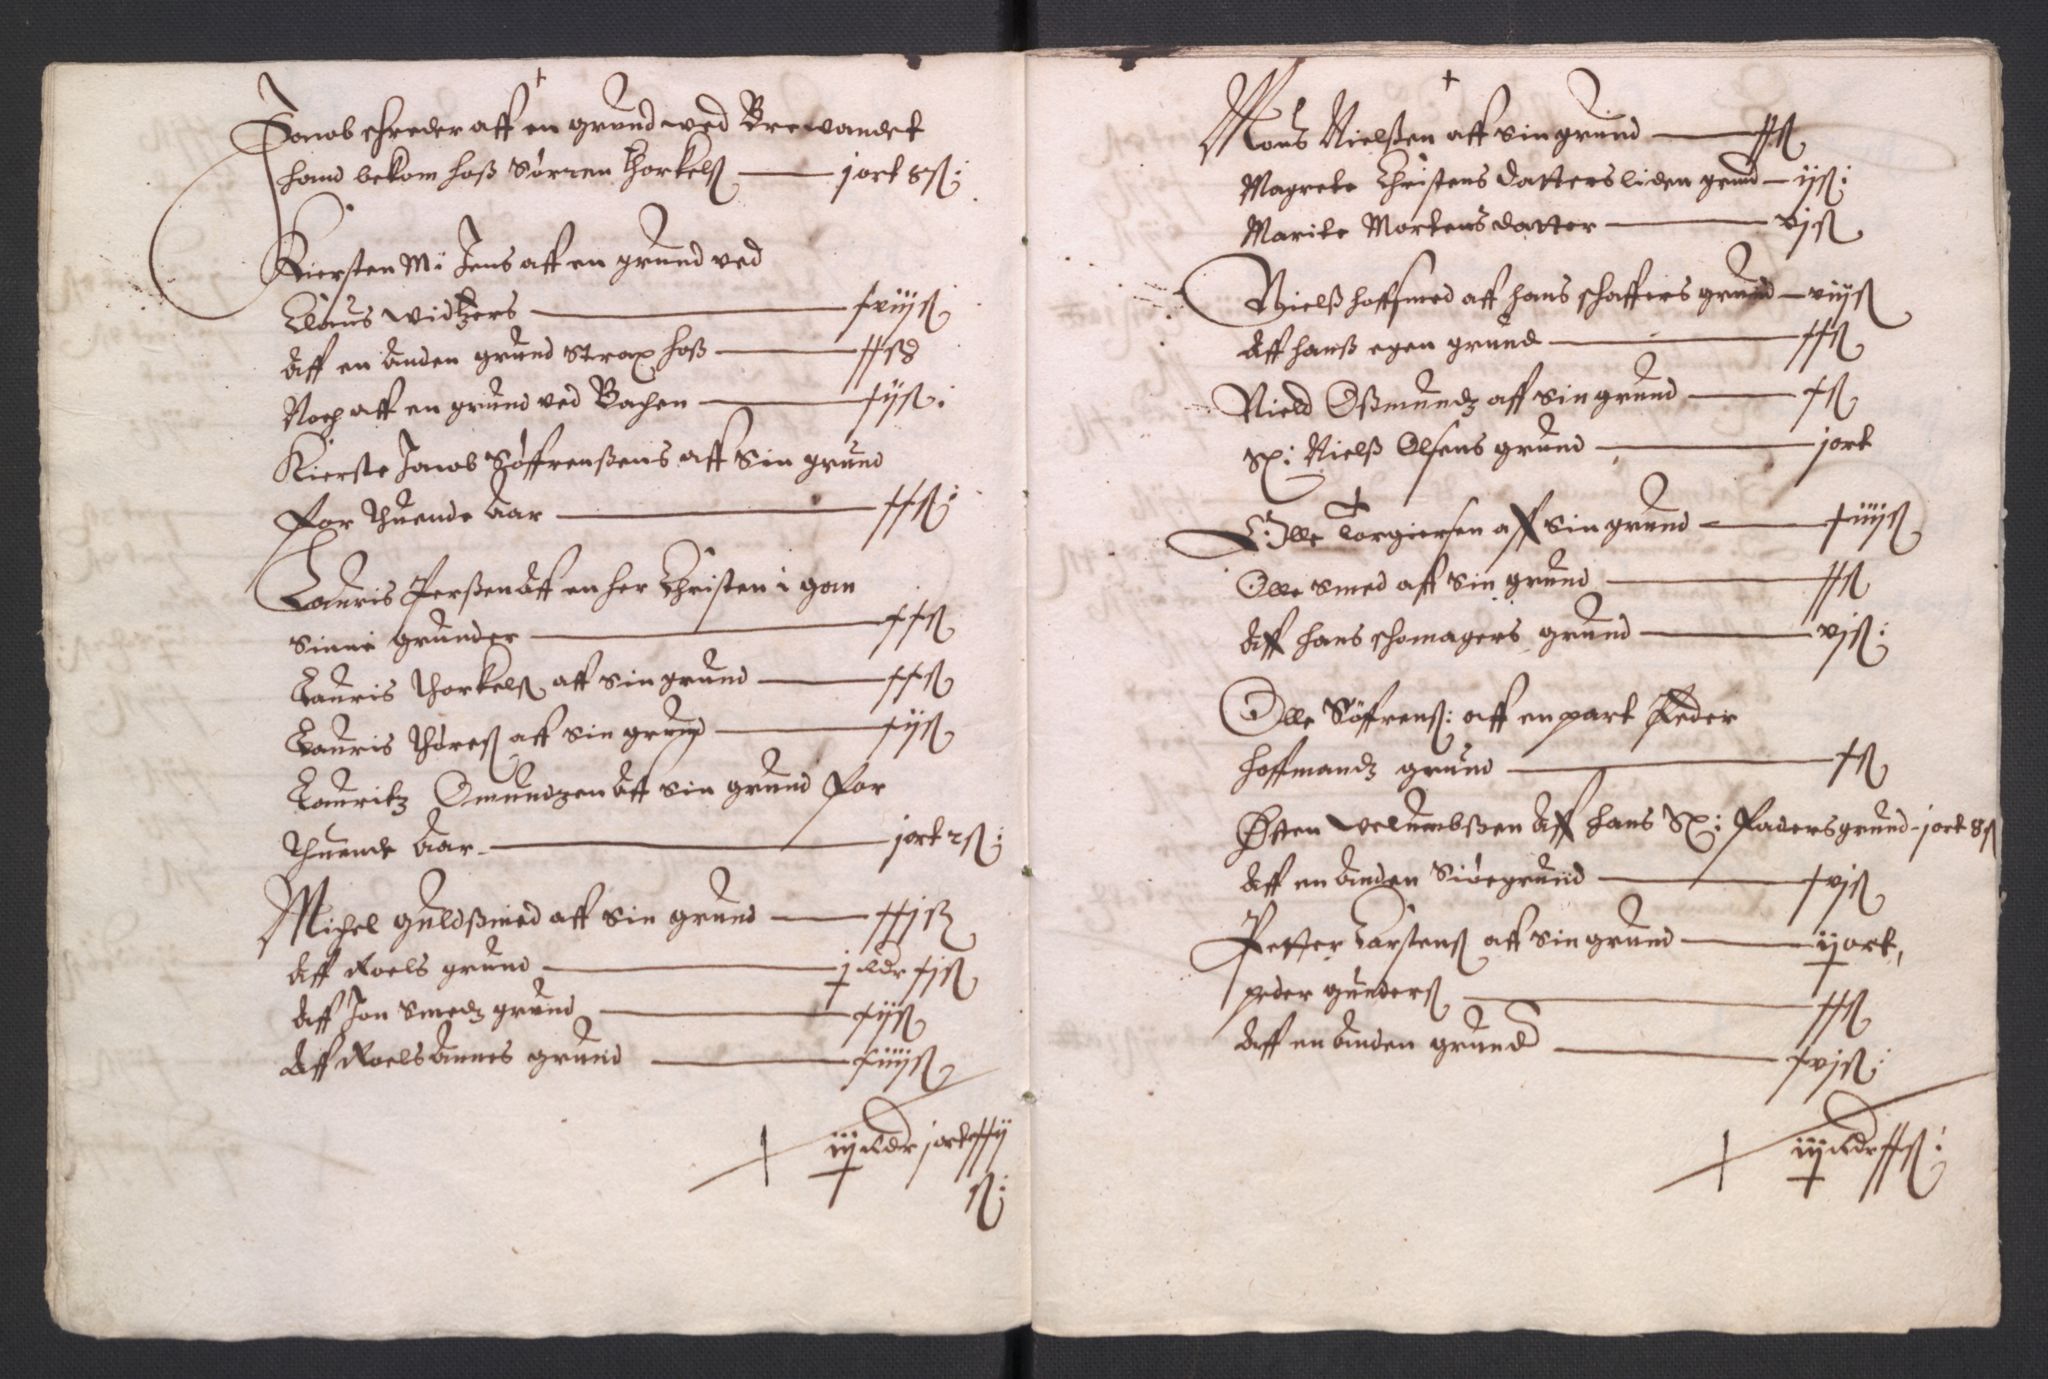 Jacob schreder aff en grund wed Brewandet
hand bekom hoß Sørren Thorkelß — j ort 8 ß:
Kiersten M: Jens aff en grund ved
Claus widtzers — xviij ß
Aff en Anden grund strax hoß — xx ß
Noch aff en grund ved Bachen — xij ß:
Kierste Jacob Søffrenßens aff sin grund
for thuende Aar — xx ß:
Lauris Perßen Aff en her Christen i gan
sinni grunder — xx ß
Lauris Thorkelß aff sin grund — xx ß
Lauris Thoreß aff sin grund — xij ß
Lauritz Omundzen Aff sin grund for
thuende Aar — j ort 2 ß:
Michel guldßmed aff sin grund — xxj ß
Aff Roels grund — j rdr xj ß
Aff Jon Smedz grund — xij ß
Aff Roels Annes grund — xiiij ß
iiij rdr j ort xxij
ß:
Mous Nielßen aff sin grund — xx ß
Magrete Christens datters liden grund — ij ß:
Marite Mortens datter — vj ß
Nielß hoffmed aff hans schaffers grund — viij ß
Aff hanß egen grund — xx ß
Nield Oßmundz aff sin grund — x ß
Sl: Nielß Olsens grund — j ort
Olle Torgiersen aff sin grund — xiiij ß
Olle Smed aff sin grund — xx ß
Aff hans schomagers grund — vj ß:
Olle Søffrenß: aff en part Peder
hoffmandz grund — x ß
Østen velumbßen Aff hans Sl: faders grund — j ort 8 ß
Aff en Anden Siøegrund — xvj ß
Petter Carstenß aff sin grund — ij ort,
peder gunderß — xx ß
Aff en Anden grund — xvj ß:
iiij rdr xx ß: